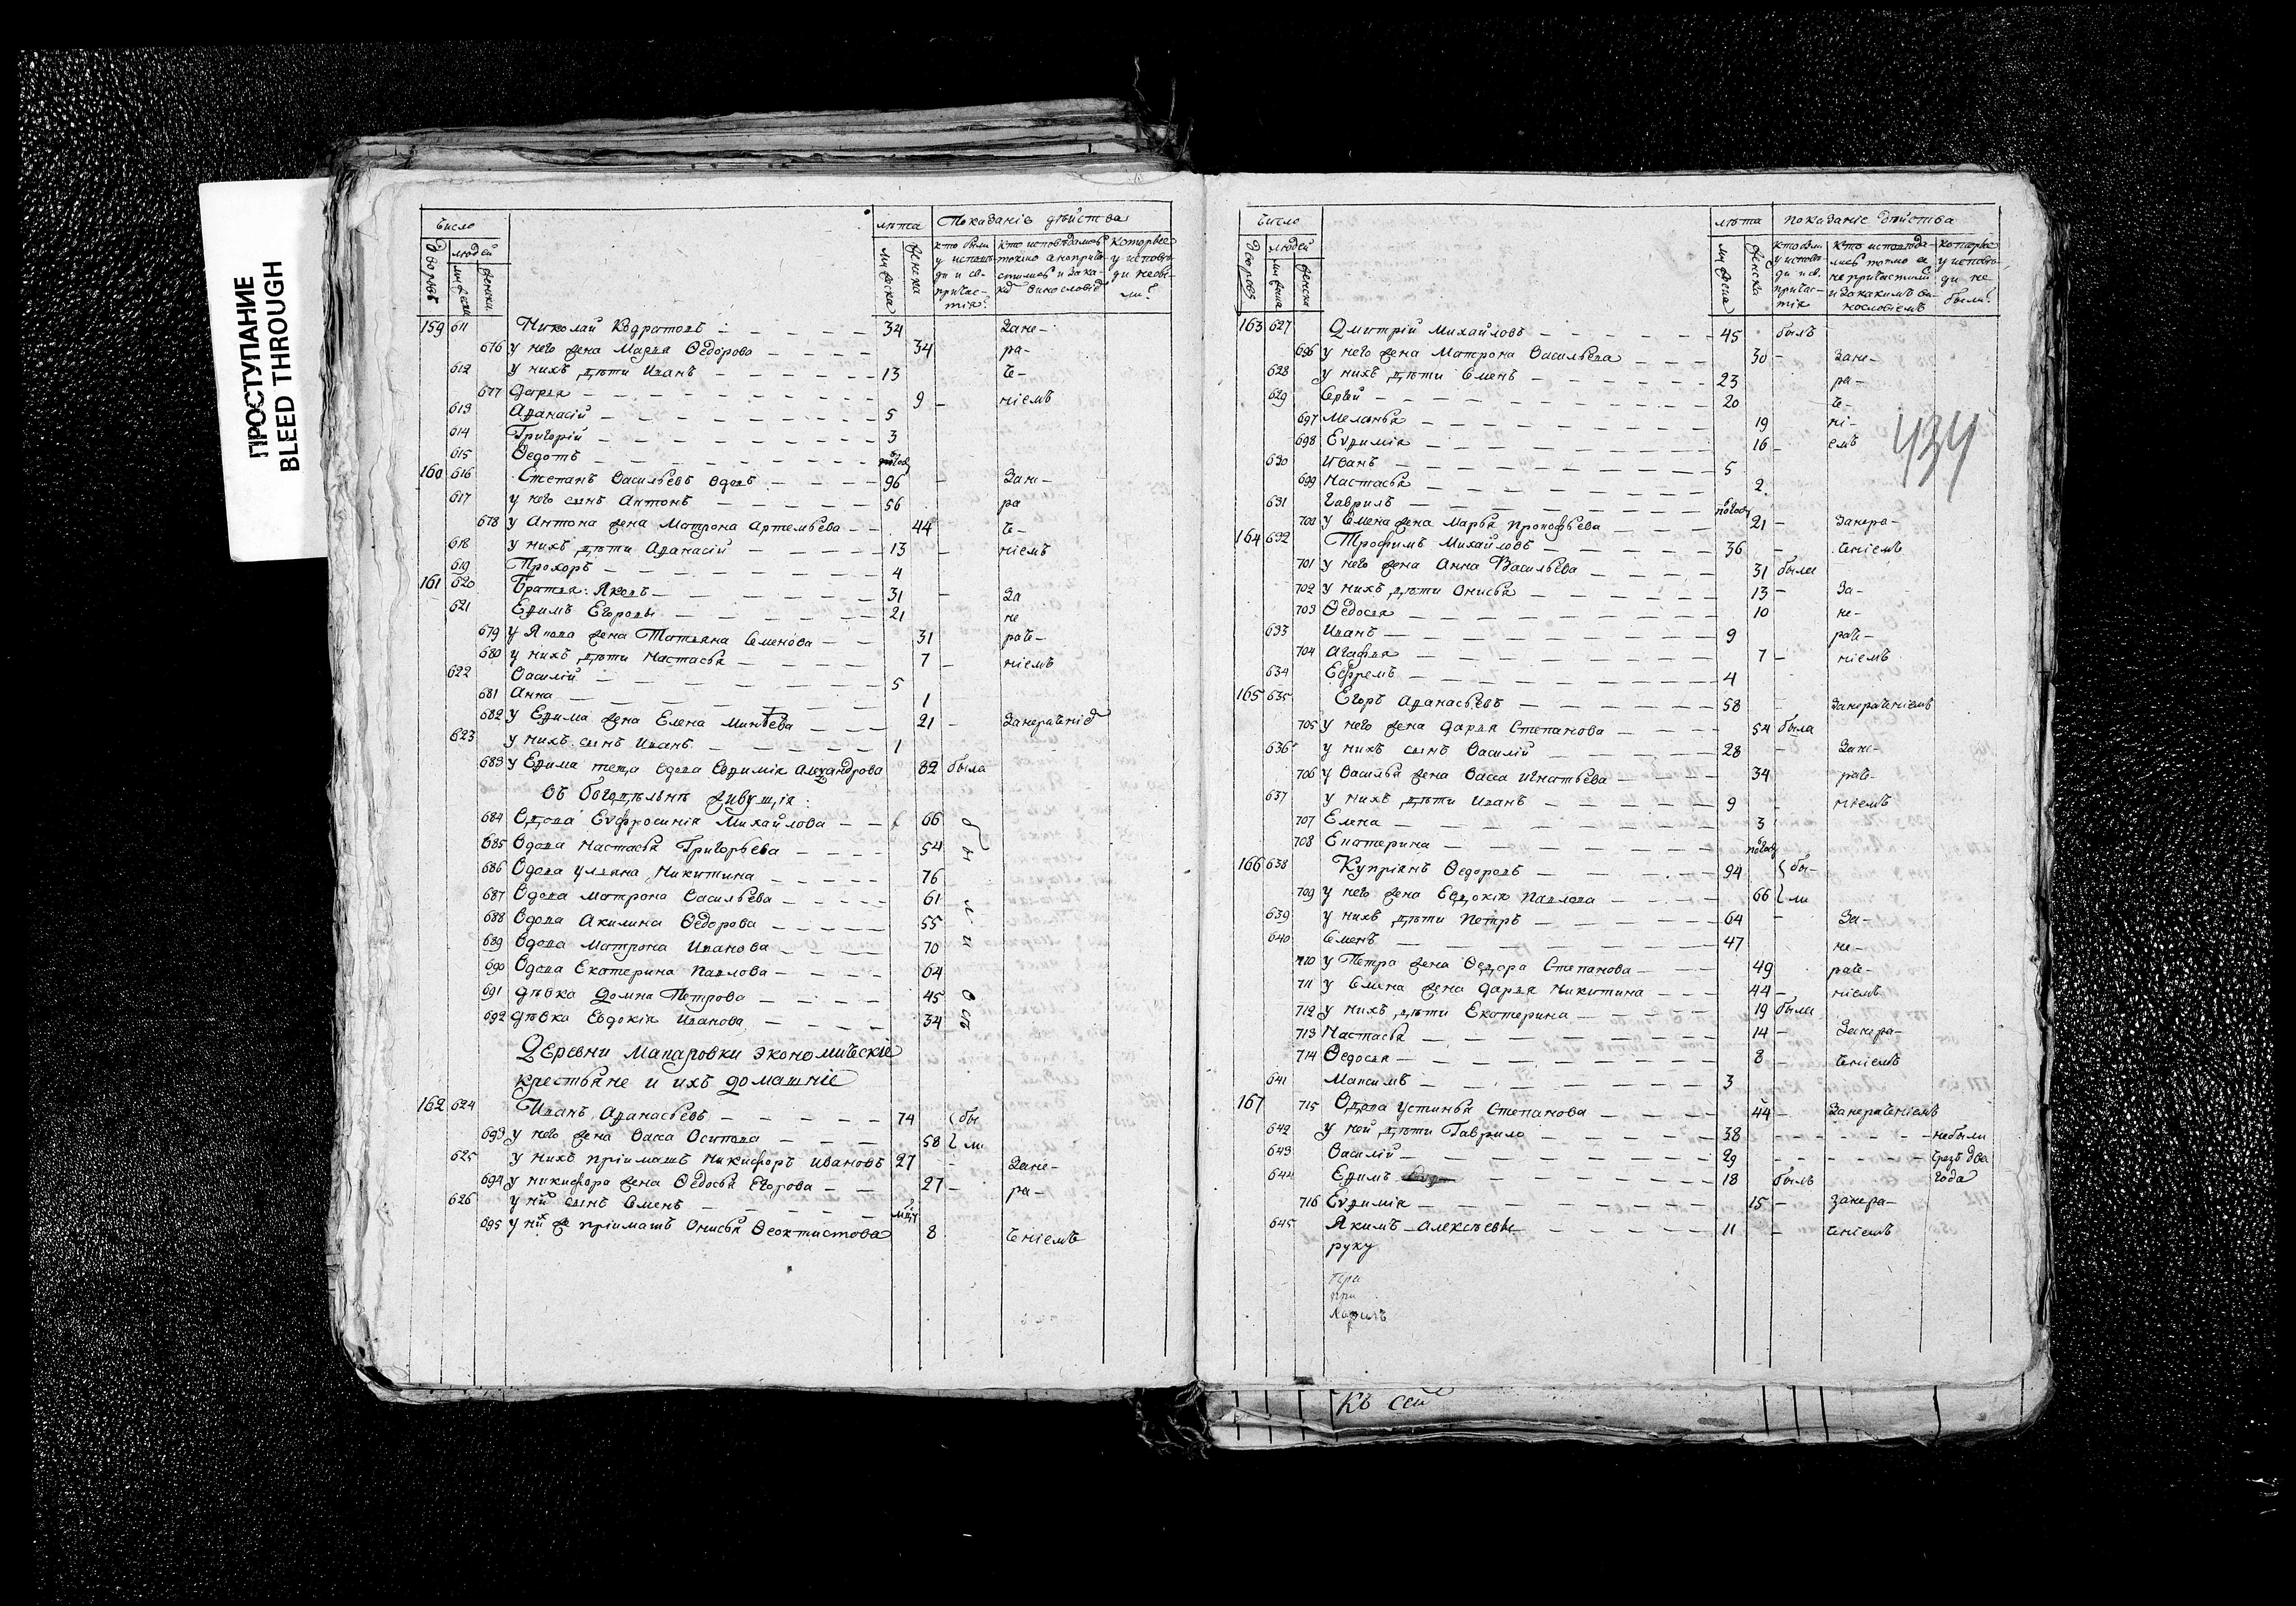 ПРОСТУПАНИЕ
BLEED THROUGH
Число
лѣта
Показаніе дѣйства
дворовъ
людей
мужеска
женска
мужеска
женска
кто были у исповѣди и св. причастія?
кто исповѣдались токмо а непричастились и за какимъ винословіемъ
которые у исповѣди небыли?
159 611 Николай Кодратовъ 34 Зане-
676 у него жена Марѳа Ѳедорова 34 ра-
612 у нихъ дѣти Иванъ 13 че-
677 Дарья 9 ніемъ
613 Аѳанасій 5
614 Григорій 3
615 Ѳедотъ полгод
160 616 Степанъ Васильевъ вдовъ 96 Зане-
617 у него сынъ Антонъ 56 ра
678 у Антона жена Матрона Артемьева 44 че-
618 у нихъ дѣти Аѳанасій 13 ніемъ
619 Прохоръ 4
161 620 Братья: Яковъ 31 За
621 Ефимъ Егоровы 21 не
679 у Якова жена Татьяна Семенова 31 раче-
680 у нихъ дѣти Настасья 7 ніемъ
622 Василій 5
681 Анна 1
682 у Ефима жена Елена Минѣева 21 Занераченіе
623 у нихъ сынъ Иванъ 1
683 у Ефима теща вдова Евфимія Александрова 82 была
Въ богодѣльнѣ живущія:
684 Вдова Евфросинія Михайлова 66
685 Вдова Настасья Григорьева 54
686 Вдова Ульяна Никитина 76
687 Вдова Матрона Васильева 61
688 Вдова Акилина Ѳедорова 55
689 Вдова Матрона Иванова 70
690 Вдова Екатерина Павлова 64
691 Дѣвка Домна Петрова 45
692 Дѣвка Евдокія Иванова 34
Деревни Макаровки экономическіе
крестьяне и ихъ домашніе
162 624 Иванъ Аѳанасьевъ 74 бы
693 у него жена Васса Осипова 58 ли
625 у нихъ пріимашъ Никифоръ Ивановъ 27 Зане-
694 у Никифора жена Ѳедосья Егорова 27 ра-
626 у них сынъ Семенъ
695 у них же пріимашъ Онисья Ѳеоктистова 8 ченіемъ
Число
лѣта
показаніе дѣйства
дворовъ
людей
мужеска
женска
мужеска
женска
кто были у исповѣди и св. причастія
кто исповѣдались токмо а не причастились и за какимъ винословіемъ
которые у исповѣди не были?
434
163 627 Дмитрій Михайловъ 45 былъ
696 у него жена Матрона Васильева 30 Зане-
628 у нихъ дѣти Семенъ 23 ра-
629 Сергѣй 20 че-
697 Меланья 19 ні-
698 Евфимія 16 емъ
630 Иванъ 5
699 Настасья 2
631 Гаврилъ полгод
700 у Семена жена Марья Прокофьева 21 Занера-
164 632 Трофимъ Михайловъ 36 ченіемъ
701 у него жена Анна Васильева 31 была
702 у нихъ дѣти Онисья 13 За-
703 Ѳедосья 10 не-
633 Иванъ 9 раче-
704 Агафья 7 ніемъ
634 Ефремъ 4
165 635 Егоръ Аѳанасьевъ 58 Занераченіемъ
705 у него жена Дарья Степанова 54 была
636 у нихъ сынъ Василій 28 Зане-
706 у Василья жена Васса Игнатьева 34 раче-
637 у нихъ дѣти Иванъ 9 ніемъ
707 Елена 3
708 Екатерина полгод
166 638 Купріянъ Ѳедоровъ 94 бы-
709 у него жена Евдокія Павлова 66 ли
639 у нихъ дѣти Петръ 64 За-
640 Семенъ 47 не-
710 у Петра жена Ѳедора Степанова 49 раче-
711 у Семена жена Дарья Никитина 44 ніемъ
712 у нихъ дѣти Екатерина 19 была
713 Настасья 14 Занера-
714 Ѳедосья 8 ченіемъ
641 Максимъ 3
167 715 Вдова Устинья Степанова 44 Занераченіемъ
642 у ней дѣти Гаврило 38 небыли
643 Василій 29 чрезъ два
644 Ефимъ 18 былъ года
716 Евфимія 15 занера-
645 Якимъ Алексѣевы 11 ченіемъ
руку
при
Къ сей